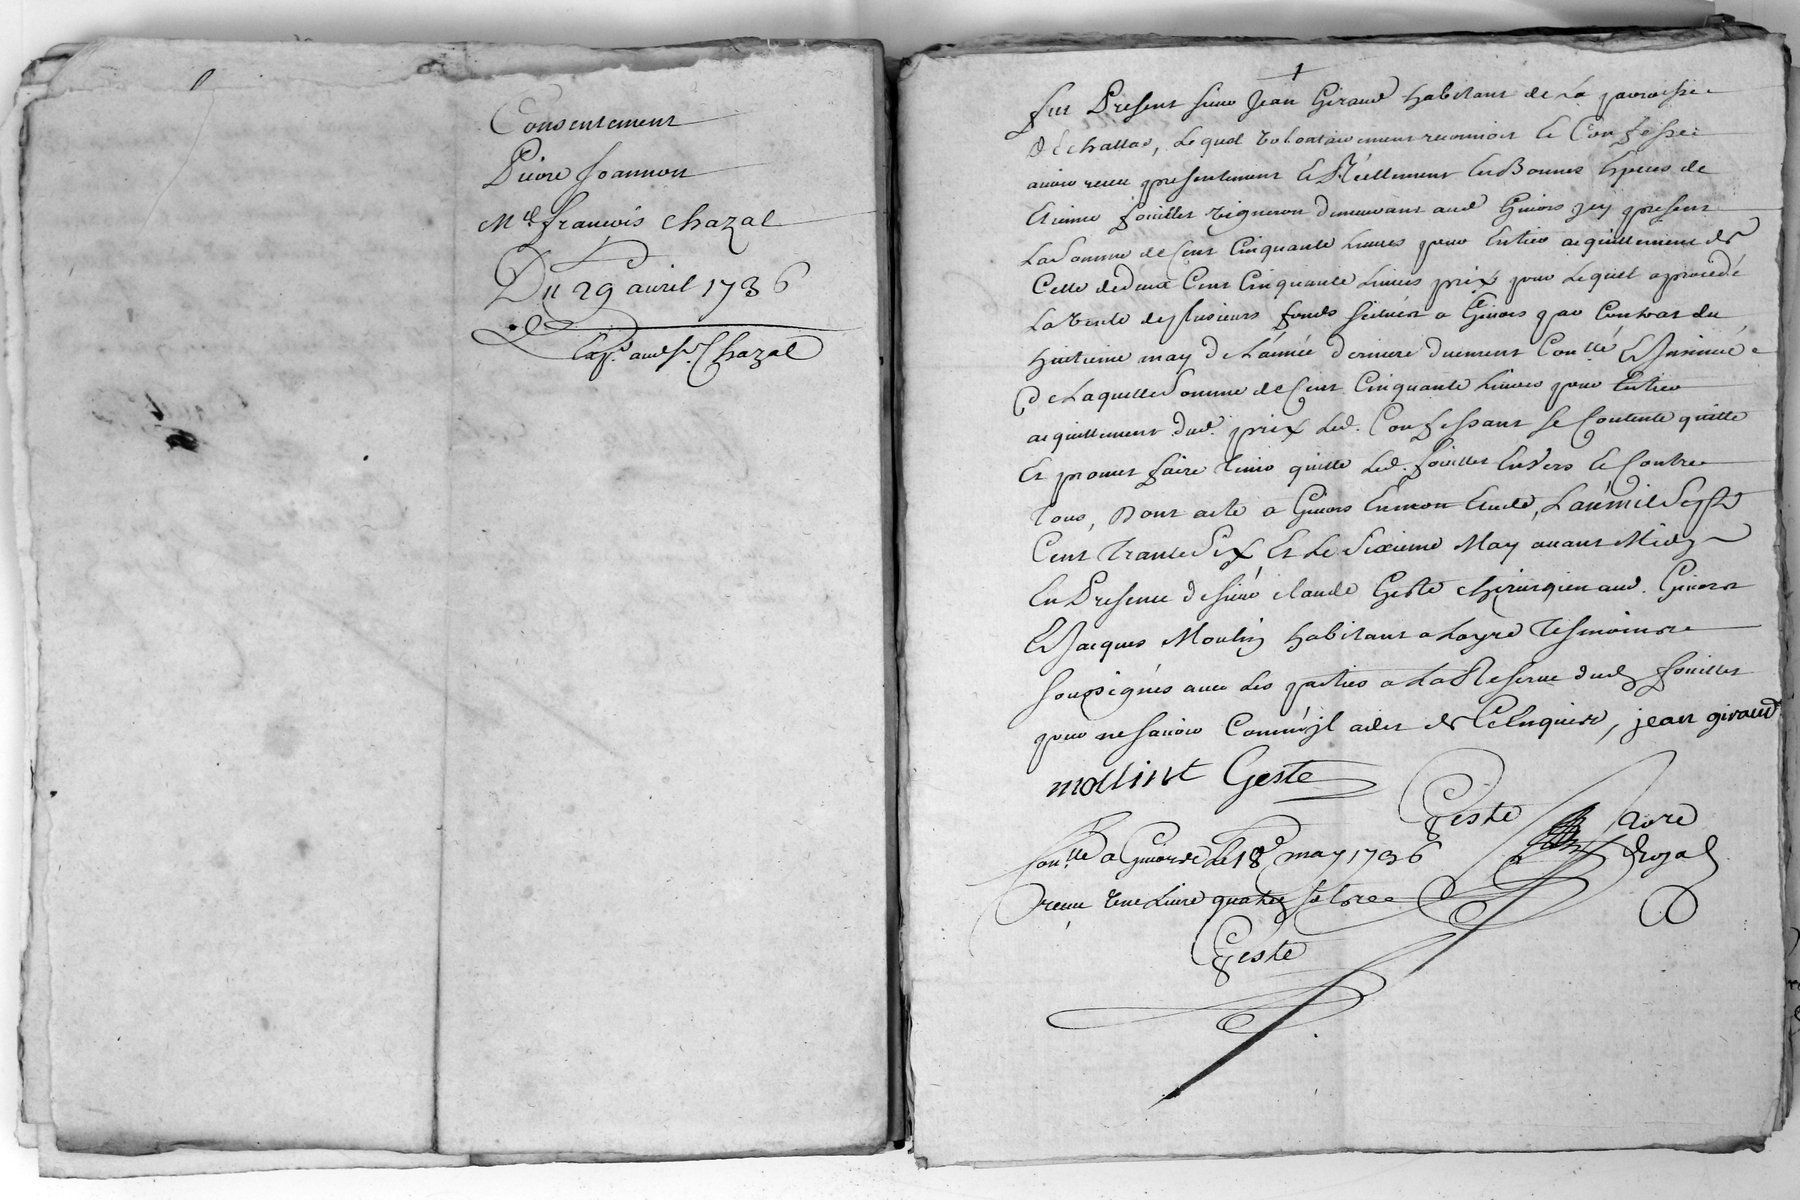 Consentement
Pierre Joannon
Me françois Chazal
Du 29 avril 1736
Exp.d aud. Sr. Chazal
1
fut Present sieur Jean Giraud habitant de la paroisse
d'Echallas, lequel volontairement reconnoit et Confesse
avoir receu presentement et Réellement en Bonnes Especes de
Etienne fouillet vigneron demeurant aud. Givors jcy present
La Somme de Cent Cinquante Livres pour Entier acquittement de
Celle de deux Cent Cinquante Livres prix pour Lequel a procedé
La vente de plusieurs fonds scitués a Givors par Contrat du
huitieme may de L'année derniere duement Con.llé Et Jnsinué
De Laquelle Somme de Cent Cinquante Livres pour Entier
acquittement dud. prix Led. Confessant se Contente quitte
Et promet faire tenir quitte Led. fouillet Envers Et Contre
tous, Dont acte a Givors En mon Etude, L'an mil Sept
Cent Trante Six Et Le Sixieme May avant Midy
En Presence de sieur Claude Geste chirurgien aud. Givors
Et Jacques Moulin habitant a Loyre Tesmoins
soussignés avec Les parties a La Reserve dud. fouillet
pour ne savoir Comm'jl a dit de Ce Enquis, jean giraud
mollint Geste
Geste Nore
Royal
Con.llé a Givors Le 18e may 1736
receu une Livre quatre sols
Geste